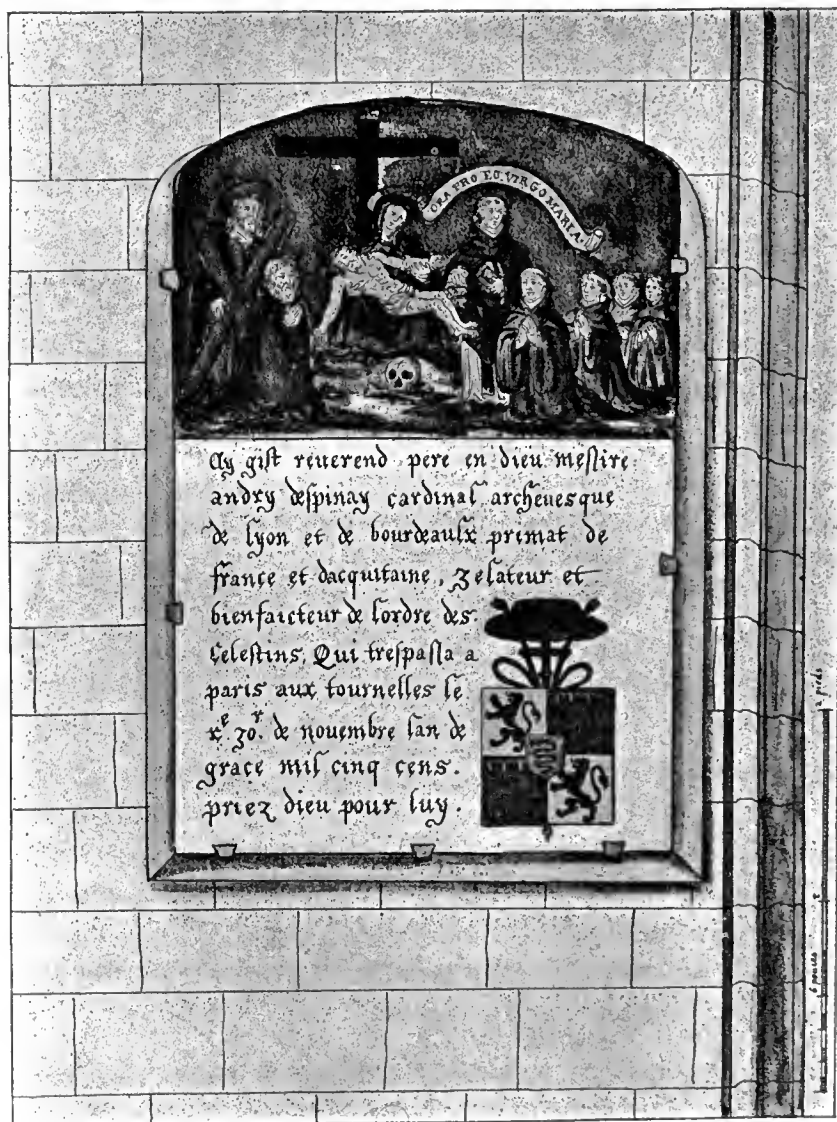 ORA PRO EO VIRGO MARIA
Cy gist reuerend pere en dieu messire
andry despinay cardinal archeuesque
de lyon et de bourdeaulx primat de
france et dacquitaine, zelateur et
bienfaicteur de lordre des
celestins, Qui trespassa a
paris aux tournelles le
xe. jor. de nouembre lan de
grace mil cinq cens.
priez dieu pour luy.
2 pieds
6 pouces